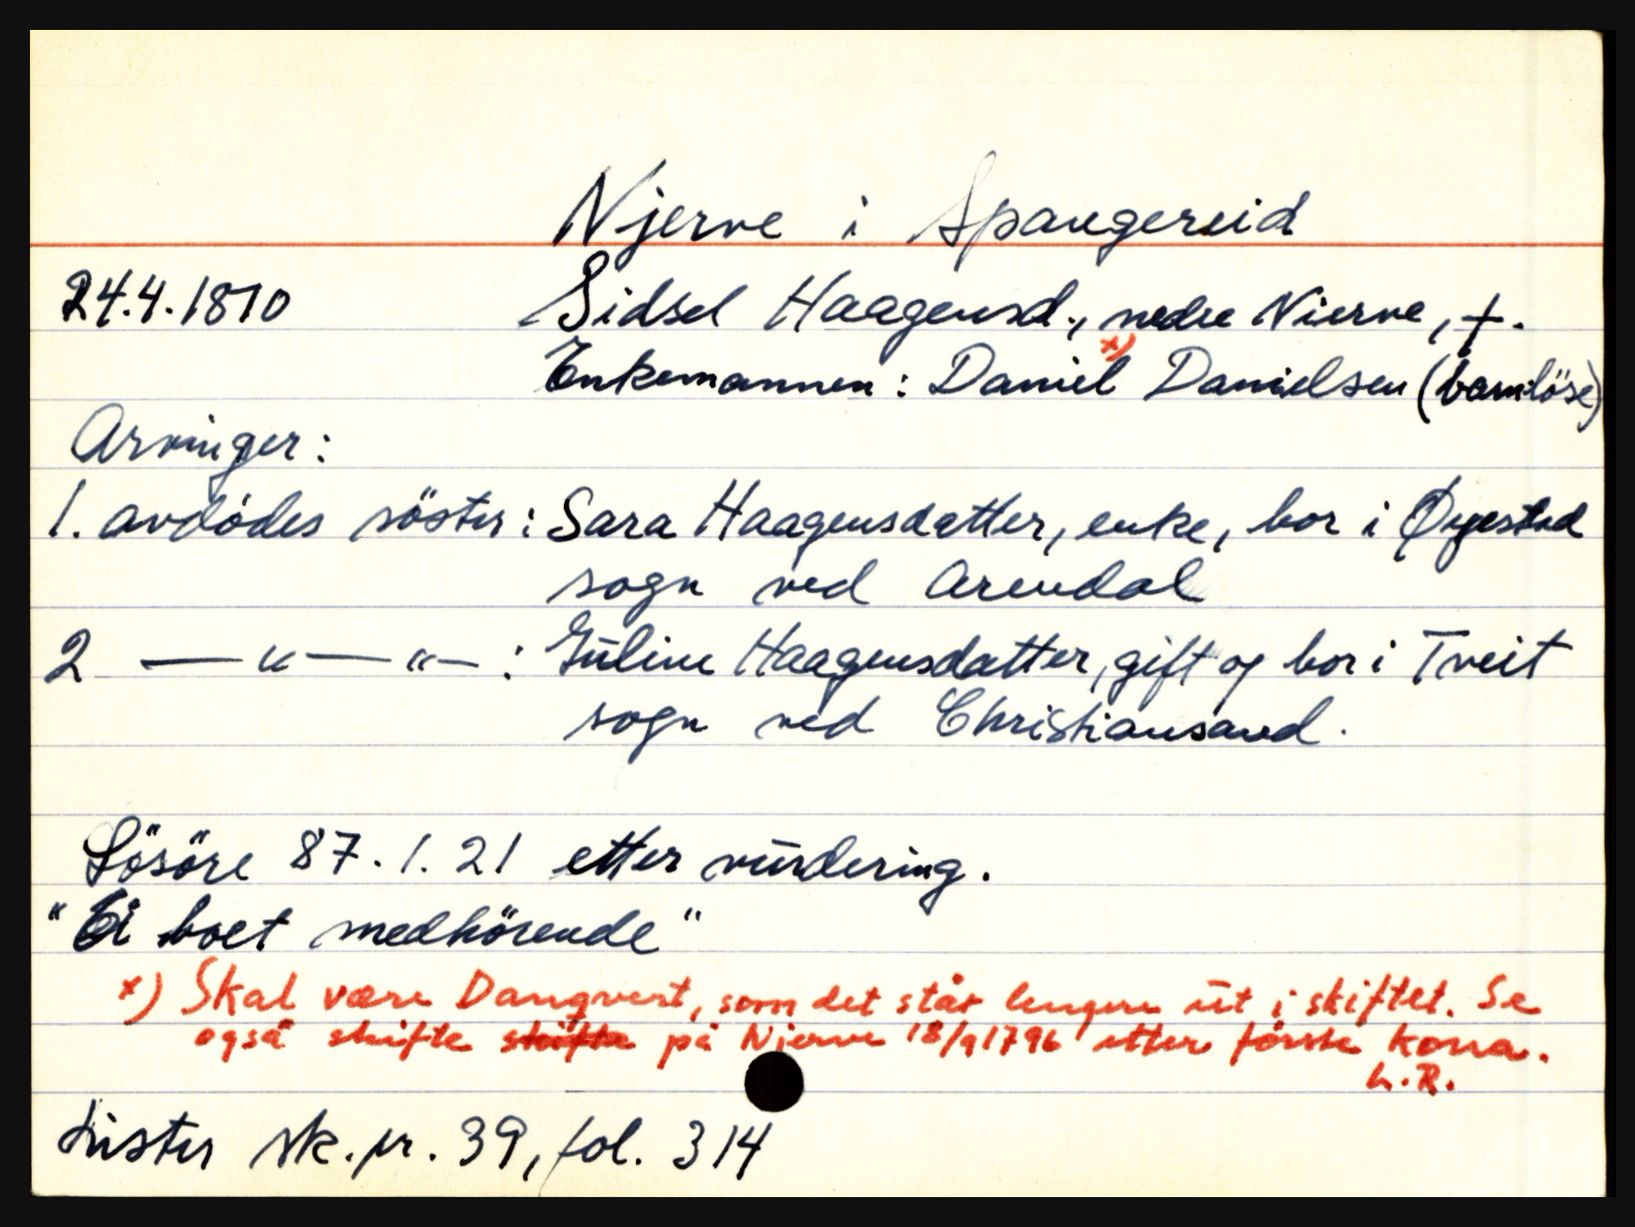 Njerve i Spangereid
24.4.1810 Sidsel Haagensd., nedre Nierve, †.
Enkemannen: Daniel x) Danielsen (barnlöse)
Arvinger:
1. avdödes söster: Sara Haagensdatter, enke, bor i Øyestad
sogn ved Arendal
2 — " — " — : Guline Haagensdatter, gift og bor i Tveit
sogn ved Christiansand.
Lösöre 87.1.21 etter vurdering.
"Ei boet medhörende"
x) Skal være Dangvert, som det står lengere ut i skiftet. Se
også skifte skifte på Njerve 18/9 1796 etter förste kona.
L.R.
Lister sk.pr. 39, fol. 314